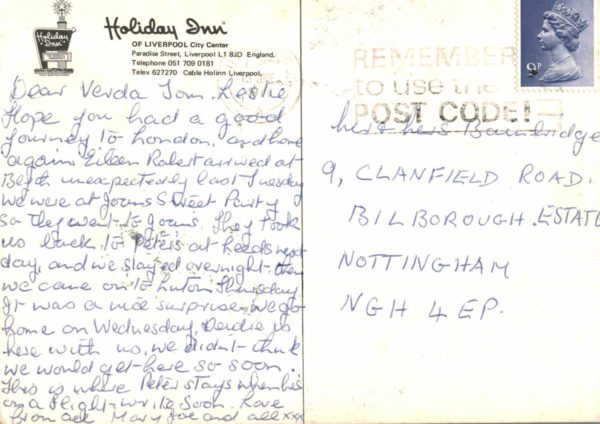 Holiday Inn
Holiday Inn
OF LIVERPOOL City Center
Paradise Street, Liverpool L1 8JD England.
Telephone 051 709 0181
Telex 627270 Cable Holinn Liverpool.
Dear Verda Tom. Leslie
Hope you had a good
Journey to London. and home
again. Eileen Robert arrived at
Blyth unexpectedly last Tuesday
we were at Joans Street Party
so they went to Joans. They took
us back to Peters at Leeds next
day, and we stayed overnight then
we came on to Luton Thursday
It was a nice surprise. we go
home on Wednesday, Deidre is
here with us, we didn't think
we would get here so soon.
This is where Peter stays when he's
on a flight - write soon. Love
from all Mary Joe and all xxx
REMEMBER
to use the
POST CODE!
9P
Bainbridge
9, CLANFIELD ROAD.
BILBOROUGH. ESTATE
NOTTINGHAM
NGH 4 EP.